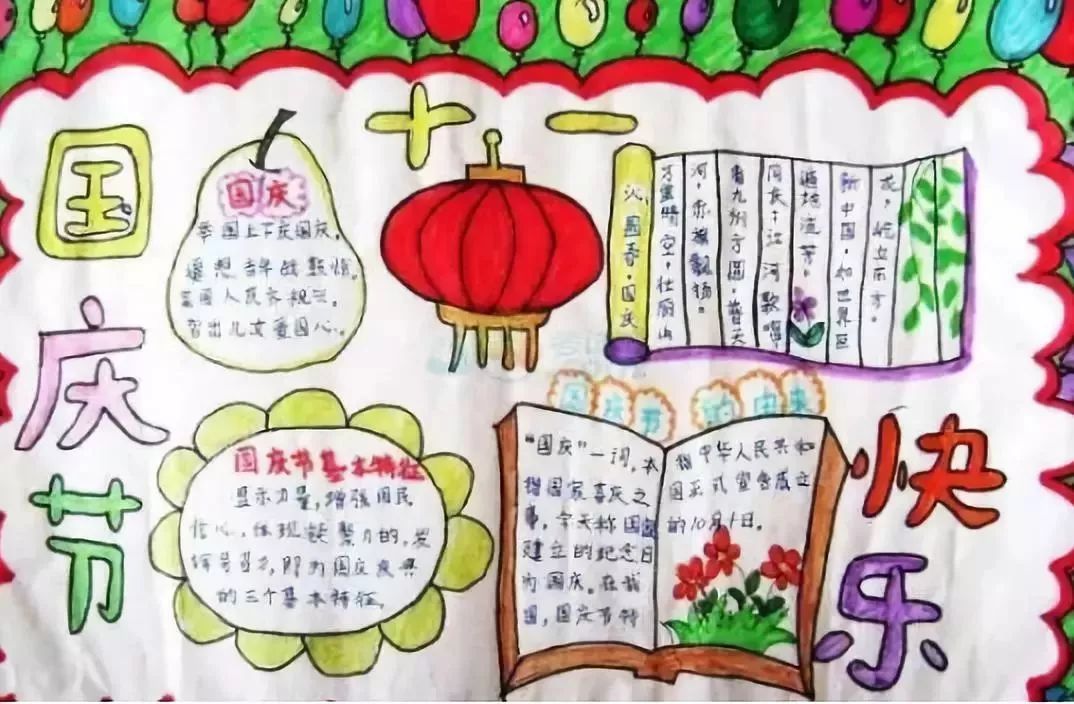 国庆节
十一
快乐
国庆
举国上下庆国庆。
遥想当年战鼓惊。
全国人民齐祝兴。
儿女爱国心。
沁园春·国庆
万里晴空,壮丽山
河,赤旗飘扬。
看九州方圆,普天
同庆;江河歌
遍地流芳。
新中国,如世界巨
龙,屹立东方。
国庆节基本特征
显示力量,增强国民
信心,体现凝聚力的,发
挥号召力,即为国庆庆典
的三个基本特征。
国庆节的由来
“国庆”一词,本
指国家喜庆之
事,今天称国家
建立的纪念日
为国庆。在我
国,国庆节特
指中华人民共和
国正式宣告成立
的10月1日。